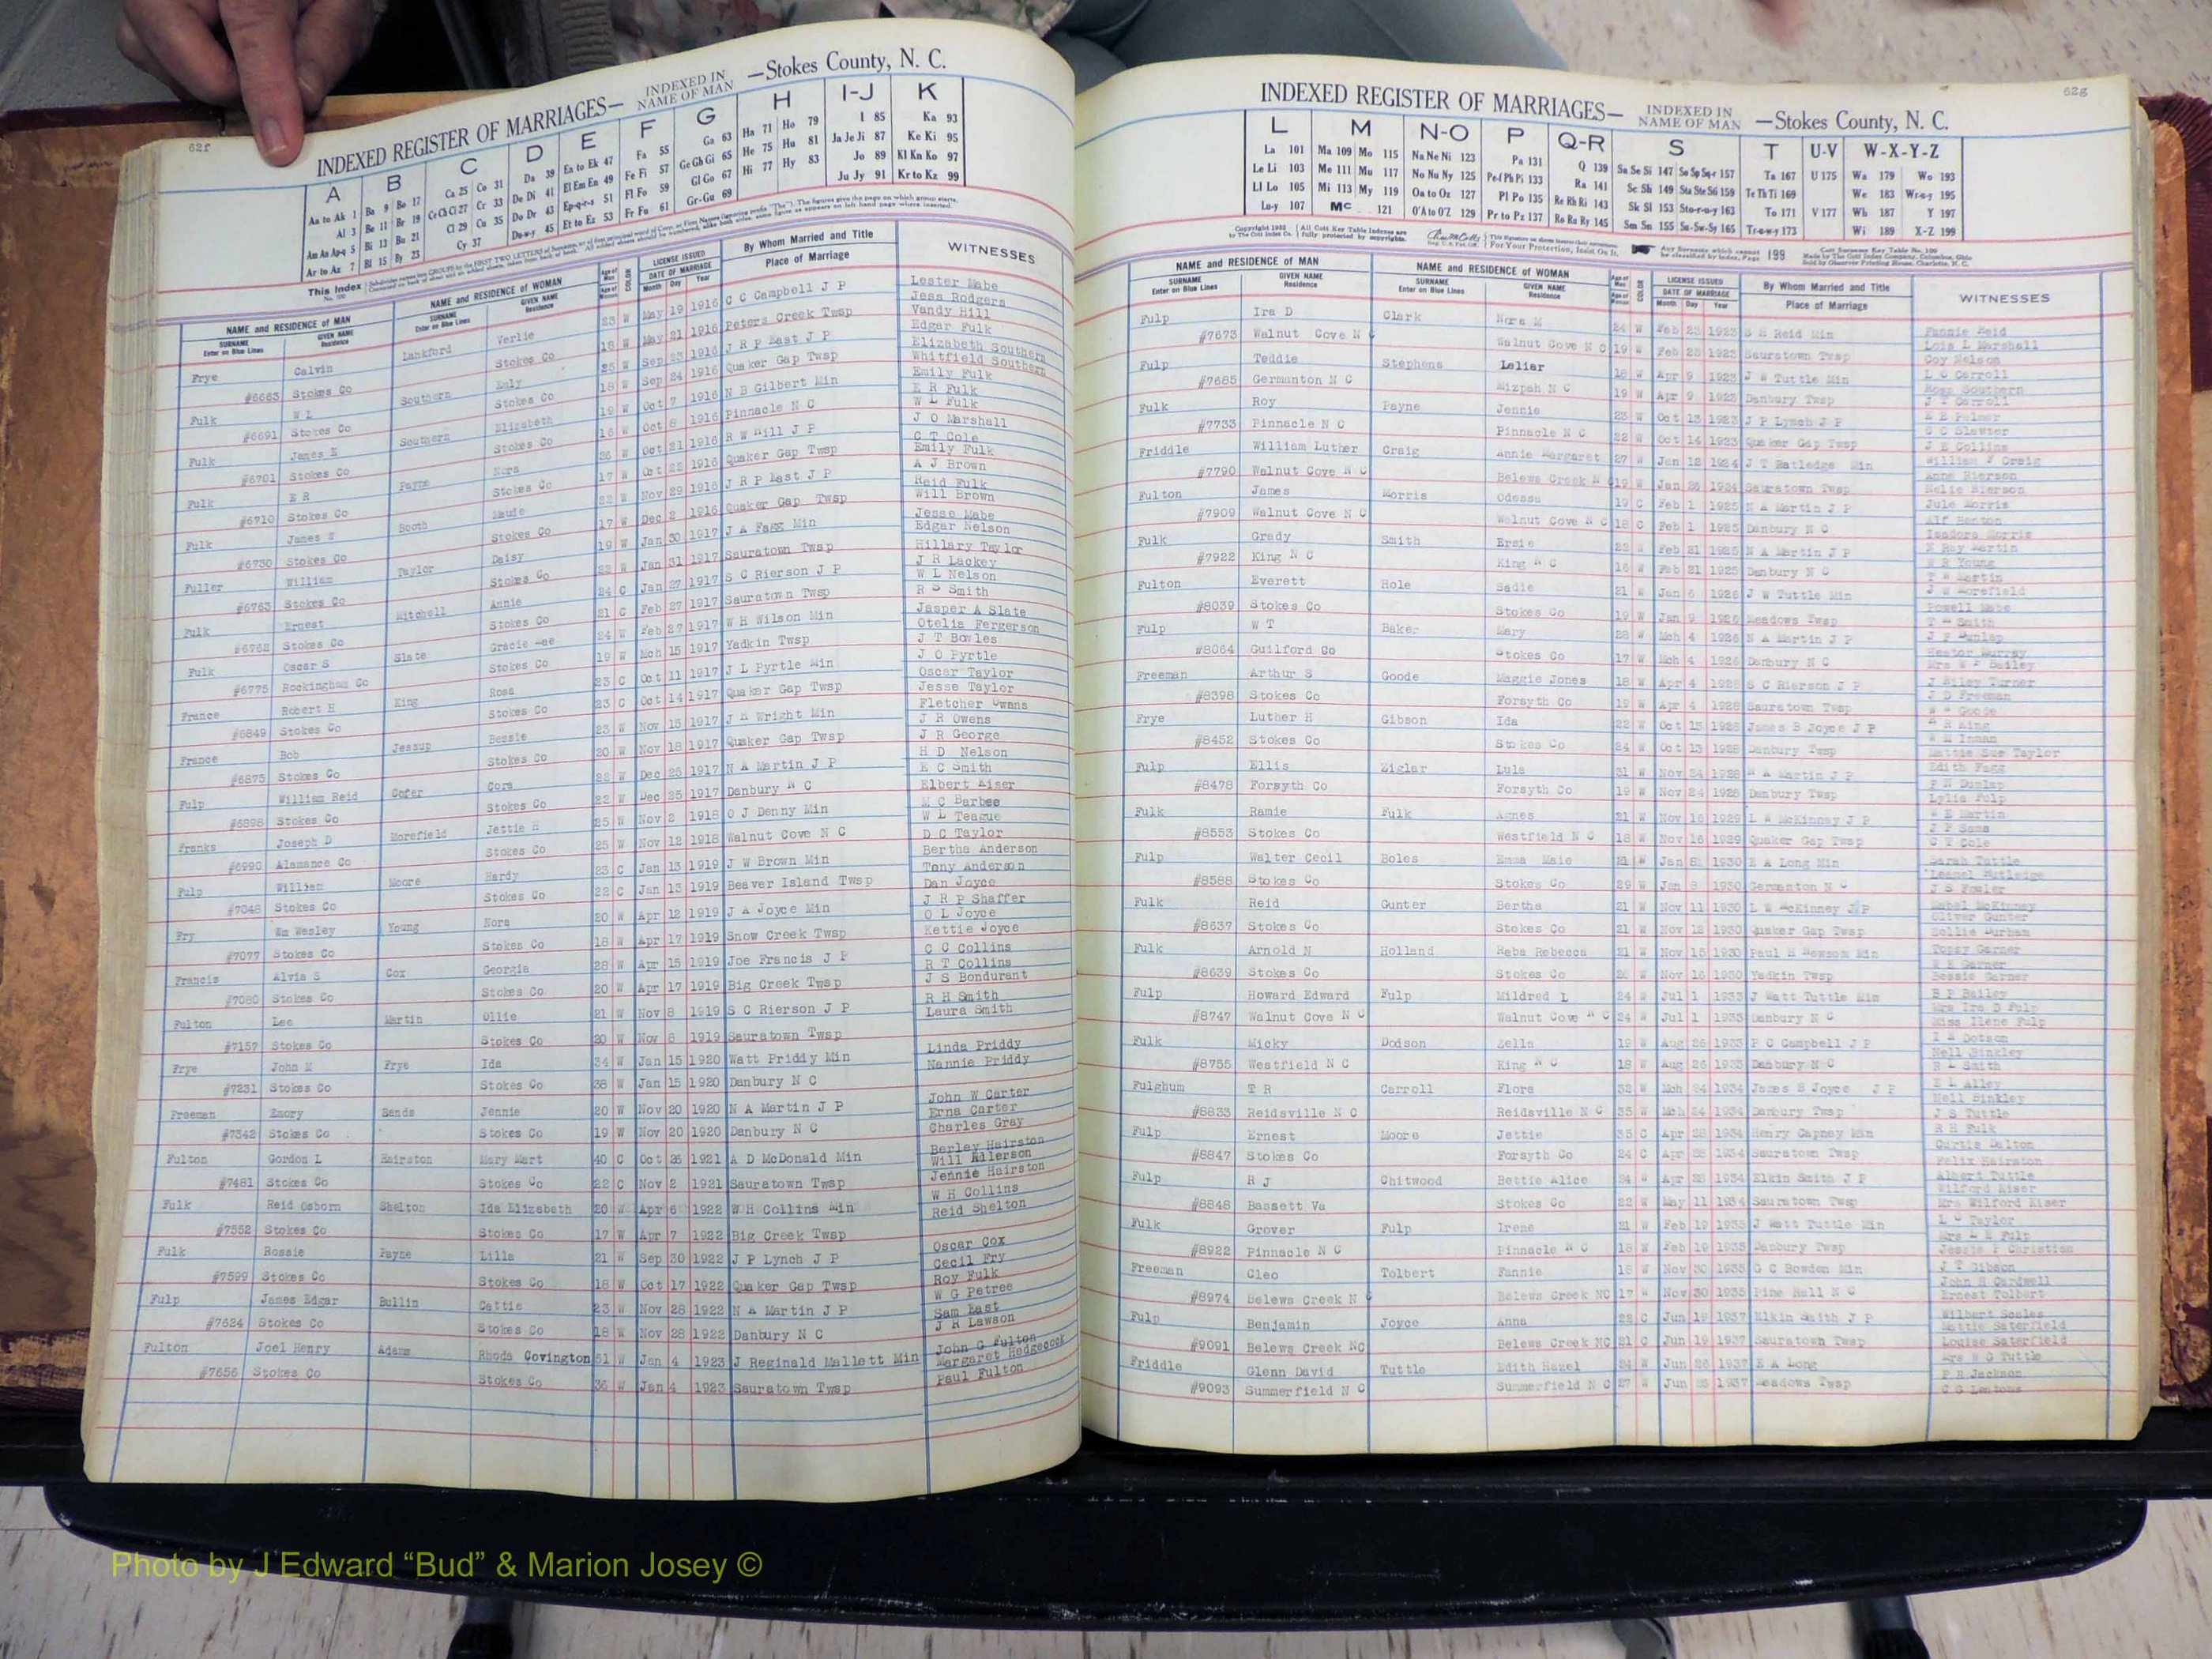 62f
INDEXED REGISTER OF MARRIAGES— INDEXED IN NAME OF MAN —Stokes County, N. C.
A B C D E F G H I-J K
Aa to Ak 1 Ba 9 Bo 17 Ca 25 Co 31 Da 39 Ea to Ek 47 Fa 55 Ga 63 Ha 71 Ho 79 I 85 Ka 93
Al 3 Be 11 Br 19 Ce Ch Ci 27 Cr 33 De Di 41 El Em En 49 Fe Fi 57 Ge Gh Gi 65 He 75 Hu 81 Ja Je Ji 87 Ke Ki 95
Am An Ap-q 5 Bi 13 Bu 21 Cl 29 Cu 35 Do Dr 43 Ep-q-r-s 51 Fl Fo 59 Gl Go 67 Hi 77 Hy 83 Jo 89 Kl Kn Ko 97
Ar to Az 7 Bl 15 By 23 Cy 37 Du-w-y 45 Et to Ez 53 Fr Fu 61 Gr-Gu 69 Ju Jy 91 Kr to Kz 99
NAME and RESIDENCE OF MAN NAME and RESIDENCE OF WOMAN LICENSE ISSUED By Whom Married and Title WITNESSES
SURNAME GIVEN NAME SURNAME GIVEN NAME DATE OF MARRIAGE Place of Marriage
Enter on Blue Lines Residence Enter on Blue Lines Residence Month Day Year
Frye Calvin Lankford Verlie 23 W May 19 1916 C C Campbell J P Lester Mabe
Jess Rodgers
#6663 Stokes Co Stokes Co 18 W May 21 1916 Peters Creek Twsp Vandy Hill
Fulk W L Southern Emly 25 W Sep 23 1916 J R P East J P Edgar Fulk
Elizabeth Southern
#6691 Stokes Co Stokes Co 18 W Sep 24 1916 Quaker Gap Twsp Whitfield Southern
Fulk James E Southern Elizabeth 19 W Oct 7 1916 N B Gilbert Min Emily Fulk
E R Fulk
#6701 Stokes Co Stokes Co 16 W Oct 8 1916 Pinnacle N C W L Fulk
Fulk E R Payne Nora 26 W Oct 21 1916 R W Hill J P J O Marshall
C T Cole
#6710 Stokes Co Stokes Co 17 W Oct 22 1916 Quaker Gap Twsp Emily Fulk
Fulk James W Booth Maude 22 W Nov 29 1916 J R P East J P A J Brown
Reid Fulk
#6730 Stokes Co Stokes Co 17 W Dec 2 1916 Quaker Gap Twsp Will Brown
Fuller William Taylor Daisy 19 W Jan 30 1917 J A Fagg Min Jesse Mabe
Edgar Nelson
#6763 Stokes Co Stokes Co 22 W Jan 31 1917 Sauratown Twsp Hillary Taylor
Fulk Ernest Mitchell Annie 24 C Jan 27 1917 S C Rierson J P J R Lackey
W L Nelson
#6762 Stokes Co Stokes Co 21 C Feb 27 1917 Sauratown Twsp R S Smith
Fulk Oscar S Slate Gracie Mae 24 W Feb 27 1917 W H Wilson Min Jasper A Slate
Otelia Fergerson
#6775 Rockingham Co Stokes Co 19 W Mch 15 1917 Yadkin Twsp J T Bowles
France Robert H King Rosa 23 C Oct 11 1917 J L Pyrtle Min J O Pyrtle
Oscar Taylor
#6849 Stokes Co Stokes Co 23 C Oct 14 1917 Quaker Gap Twsp Jesse Taylor
France Bob Jessup Bessie 23 W Nov 15 1917 J A Wright Min Fletcher Owans
J R Owens
#6875 Stokes Co Stokes Co 20 W Nov 18 1917 Quaker Gap Twsp J R George
Fulp William Reid Cofer Cora 22 W Dec 25 1917 N A Martin J P H D Nelson
E C Smith
#6898 Stokes Co Stokes Co 22 W Dec 25 1917 Danbury N C Elbert Kiser
Franks Joseph D Morefield Jettie H 25 W Nov 2 1918 O J Denny Min M C Barbee
W L Teague
#6990 Alamance Co Stokes Co 25 W Nov 12 1918 Walnut Cove N C D C Taylor
Fulp William Moore Hardy 23 C Jan 13 1919 J W Brown Min Bertha Anderson
Tony Anderson
#7048 Stokes Co Stokes Co 22 C Jan 13 1919 Beaver Island Twsp Dan Joyce
Fry Wm Wesley Young Nora 20 W Apr 12 1919 J A Joyce Min J R P Shaffer
O L Joyce
#7077 Stokes Co Stokes Co 18 W Apr 17 1919 Snow Creek Twsp Kettie Joyce
Francis Alvis S Cox Georgia 28 W Apr 15 1919 Joe Francis J P C C Collins
R T Collins
#7080 Stokes Co Stokes Co 20 W Apr 17 1919 Big Creek Twsp J S Bondurant
Fulton Lee Martin Ollie 21 W Nov 8 1919 S C Rierson J P R H Smith
Laura Smith
#7157 Stokes Co Stokes Co 20 W Nov 8 1919 Sauratown Twsp
Frye John M Frye Ida 34 W Jan 15 1920 Watt Priddy Min Linda Priddy
Nannie Priddy
#7231 Stokes Co Stokes Co 38 W Jan 15 1920 Danbury N C
Freeman Emory Sands Jennie 20 W Nov 20 1920 N A Martin J P John W Carter
Erna Carter
#7342 Stokes Co Stokes Co 19 W Nov 20 1920 Danbury N C Charles Gray
Fulton Gordon L Hairston Mary Mart 40 C Oct 26 1921 A D McDonald Min Berley Hairston
Will Ellerson
#7481 Stokes Co Stokes Co 22 C Nov 2 1921 Sauratown Twsp Jennie Hairston
Fulk Reid Osborn Shelton Ida Elizabeth 20 W Apr 6 1922 W H Collins Min W R Collins
Reid Shelton
#7552 Stokes Co Stokes Co 17 W Apr 7 1922 Big Creek Twsp
Fulk Rossie Payne Lilla 21 W Sep 30 1922 J P Lynch J P Oscar Cox
Cecil Fry
#7599 Stokes Co Stokes Co 18 W Oct 17 1922 Quaker Gap Twsp Roy Fulk
Fulp James Edgar Bullin Cattie 23 W Nov 28 1922 N A Martin J P W G Petree
Sam East
#7624 Stokes Co Stokes Co 18 W Nov 28 1922 Danbury N C J R Lawson
Fulton Joel Henry Adams Rhoda Covington 51 W Jan 4 1923 J Reginald Mallett Min John G Fulton
Margaret Hedgecock
#7656 Stokes Co Stokes Co 36 W Jan 4 1923 Sauratown Twsp Paul Fulton
62g
INDEXED REGISTER OF MARRIAGES— INDEXED IN NAME OF MAN —Stokes County, N. C.
L M N-O P Q-R S T U-V W-X-Y-Z
La 101 Ma 109 Mo 115 Na Ne Ni 123 Pa 131 Q 139 Sa Se Si 147 So Sp Sq-r 157 Ta 167 U 175 Wa 179 Wo 193
Le Li 103 Me 111 Mu 117 No Nu Ny 125 Pe-f Ph Pi 133 Ra 141 Sc Sh 149 Sta Ste Sti 159 Te Th Ti 169 We 183 Wr-u-y 195
Ll Lo 105 Mi 113 My 119 Oa to Oz 127 Pl Po 135 Re Rh Ri 143 Sk Sl 153 Sto-r-u-y 163 To 171 V 177 Wh 187 Y 197
Lu-y 107 Mc 121 O'A to O'Z 129 Pr to Pz 137 Ro Ru Ry 145 Sm Sn 155 Su-Sw-Sy 165 Tr-u-w-y 173 Wi 189 X-Z 199
NAME and RESIDENCE OF MAN NAME and RESIDENCE OF WOMAN LICENSE ISSUED By Whom Married and Title WITNESSES
SURNAME GIVEN NAME SURNAME GIVEN NAME DATE OF MARRIAGE Place of Marriage
Enter on Blue Lines Residence Enter on Blue Lines Residence Month Day Year
Fulp Ira D Clark Nora M 24 W Feb 23 1923 S H Reid Min Fannie Reid
Lois L Marshall
#7673 Walnut Cove N C Walnut Cove N C 19 W Feb 25 1923 Sauratown Twsp Coy Nelson
Fulp Teddie Stephens Leliar 18 W Apr 9 1923 J W Tuttle Min L G Carroll
Ross Southern
#7685 Germanton N C Mizpah N C 19 W Apr 9 1923 Danbury Twsp
Fulk Roy Payne Jennie 23 W Oct 13 1923 J P Lynch J P E E Palmer
C C Slawter
#7733 Pinnacle N C Pinnacle N C 22 W Oct 14 1923 Quaker Gap Twsp J E Collins
Friddle William Luther Craig Annie Margaret 27 W Jan 12 1924 J T Ratledge Min William F Craig
Anne Rierson
#7790 Walnut Cove N C Belews Creek N C 19 W Jan 26 1924 Sauratown Twsp Nelie Rierson
Fulton James Morris Odessa 19 C Feb 1 1925 N A Martin J P Jule Morris
#7909 Walnut Cove N C Walnut Cove N C 18 C Feb 1 1925 Danbury N C Isadora Morris
Fulk Grady Smith Ersie 22 W Feb 21 1925 N A Martin J P N Roy Martin
W R Young
#7922 King N C King N C 16 W Feb 21 1925 Danbury N C T W Martin
Fulton Everett Hole Sadie 21 W Jan 6 1926 J W Tuttle Min J W Morefield
Powell Mabe
#8039 Stokes Co Stokes Co 19 W Jan 9 1926 Meadows Twsp
Fulp W T Baker Mary 28 W Mch 4 1926 N A Martin J P J F Dunlap
Hester Murray
#8064 Guilford Co Stokes Co 17 W Mch 4 1926 Danbury N C Mrs W F Bailey
Freeman Arthur S Goode Maggie Jones 18 W Apr 4 1928 S C Rierson J P J Riley Turner
J D Freeman
#8398 Stokes Co Forsyth Co 19 W Apr 4 1928 Sauratown Twsp
Frye Luther H Gibson Ida 22 W Oct 13 1928 James B Joyce J P
W M Inman
#8452 Stokes Co Stokes Co 24 W Oct 13 1928 Danbury Twsp Mattie Sue Taylor
Fulp Ellis Ziglar Lula 31 W Nov 24 1928 N A Martin J P Edith Fagg
P N Dunlap
#8478 Forsyth Co Forsyth Co 19 W Nov 24 1928 Danbury Twsp Lylia Fulp
Fulk Ramie Fulk Agnes 21 W Nov 16 1929 L W McKinney J P W E Martin
J F Sams
#8553 Stokes Co Westfield N C 18 W Nov 16 1929 Quaker Gap Twsp C T Cole
Fulp Walter Cecil Boles Emma Maie 21 W Jan 1930 E A Long Min Sarah Tuttle
#8588 Stokes Co Stokes Co 29 W Jan 1930 Germanton N C J S Fowler
Fulk Reid Gunter Bertha 21 W Nov 11 1930 L W McKinney J P Mabel McKinney
Oliver Gunter
#8637 Stokes Co Stokes Co 21 W Nov 12 1930 Quaker Gap Twsp Zollie Durham
Fulk Arnold N Holland Reba Rebecca 21 W Nov 15 1930 Paul H Newsom Min Topsy Garner
W E Garner
#8639 Stokes Co Stokes Co 20 W Nov 16 1930 Yadkin Twsp Bessie Garner
Fulp Howard Edward Fulp Mildred L 24 W Jul 1 1933 J Watt Tuttle Min B P Bailey
Mrs Ira D Fulp
#8747 Walnut Cove N C Walnut Cove N C 24 W Jul 1 1933 Danbury N C Miss Ilene Fulp
Fulk Micky Dodson Zella 19 W Aug 26 1933 P C Campbell J P
Nell Binkley
#8755 Westfield N C King N C 18 W Aug 26 1933 Danbury N C R L Smith
Fulghum T R Carroll Flora 32 W Mch 24 1934 James B Joyce J P E L Alley
Nell Binkley
#8833 Reidsville N C Reidsville N C 35 W Mch 24 1934 Danbury Twsp J S Tuttle
Fulp Ernest Moore Jettie 35 C Apr 28 1934 Henry Capney Min R H Fulk
Curtis Dalton
#8847 Stokes Co Forsyth Co 24 C Apr 28 1934 Sauratown Twsp Felix Hairston
Fulp R J Chitwood Bettie Alice 24 W Apr 28 1934 Elkin Smith J P Albert Tuttle
Wilford Kiser
#8848 Bassett Va Stokes Co 22 W May 11 1934 Sauratown Twsp Mrs Wilford Kiser
Fulk Grover Fulp Irene 21 W Feb 19 1935 J Watt Tuttle Min
#8922 Pinnacle N C Pinnacle N C 18 W Feb 19 1935 Danbury Twsp Jessie F Christian
Freeman Cleo Tolbert Fannie 18 W Nov 30 1935 G C Bowden Min J T Gibson
John H Cardwell
#8974 Belews Creek N C Belews Creek NC 17 W Nov 30 1935 Pine Hall N C Ernest Tolbert
Fulp Benjamin Joyce Anna 22 C Jun 19 1937 Elkin Smith J P Wilbert Scales
Mattie Saterfield
#9091 Belews Creek NC Belews Creek NC 21 C Jun 19 1937 Sauratown Twsp Louise Saterfield
Friddle Glenn David Tuttle Edith Hazel 24 W Jun 26 1937 E A Long Mrs W G Tuttle
P R Jackson
#9093 Summerfield N C Summerfield N C 27 W Jun 26 1937 Meadows Twsp
Photo by J Edward “Bud” & Marion Josey ©